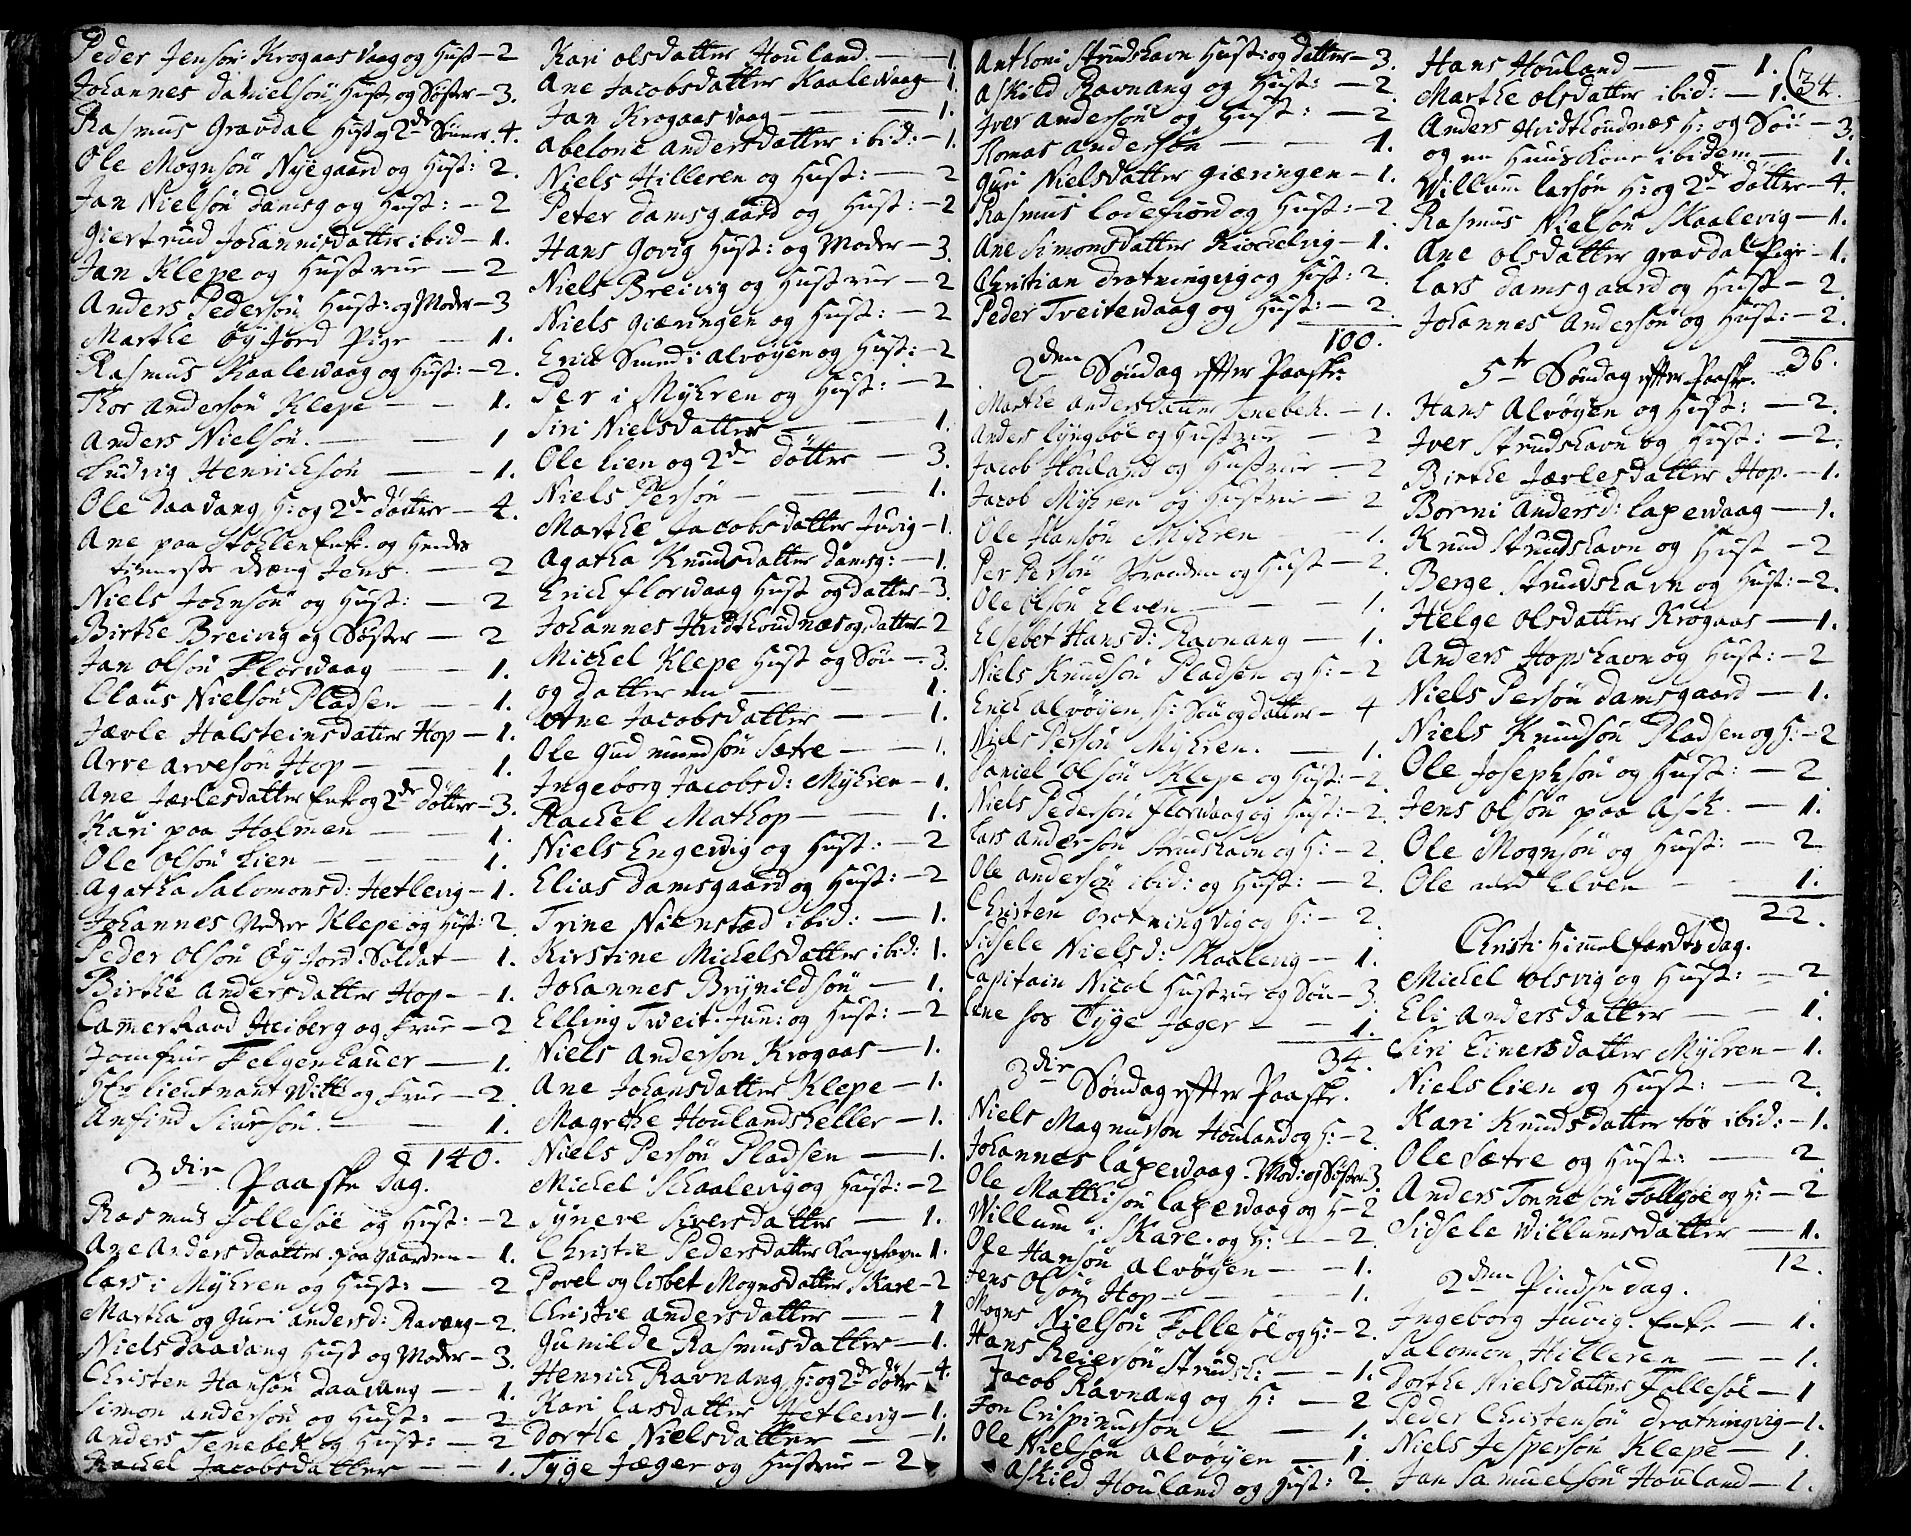 Peder Jensøn Krogaas Vaag og Hust – 2
Johannes Danielsøn Hust og Søster – 3.
Rasmus Gravdal Hust og 2de Sønner – 4.
Ole Mognsøn Nyegaard og Hust: 2.
Jan Nielsøn Damsg og Hust: – 2
Giertrud Johannisdatter ibid – 1.
Jan Klepe og Hustrue – 2
Anders Pedersøn Hust: og Moder – 3
Marthe Øyjord Pige – 1.
Rasmus Kaalevaag og Hust: – 2.
Thor Andersøn Klepe – – 1.
Anders Nielsøn. – – 1
Ludvig Henrichsøn – – 1.
Ole Daavang H: og 2de døttre – 4.
Ane paa Stohlen Enke og Hendes
tienneste dreng Jens. – 2
Niels Johnsøn og Hust: – 2
Birthe Breivig og Søster – 2
Jan Olsøn Florvaag – 1.
Claus Nielsøn Pladsen – 1.
Jærle Halsteinsdatter Hop – 1.
Arve Arvesøn Hop – – 1.
Ane Jærlesdatter Enke og 2de døttre – 3.
Kari paa Holmen – – 1.
Ole Olsøn Lien – – – 1.
Agatha Salomonsd: Hetlevig – 1.
Johannes Nedre Klepe og Hust: 2.
Peder Olsøn Øyjord Soldat – 1.
Birthe Andersdatter Hop – – 1.
Camerraad Heiberg og Frue – 2
Jomfrue Felgenhauer – 1.
Hr Lieutnant Witt og Frue – 2.
Anfind Siursøn. – – 1.
140.
3die Paaske Dag.
Rasmus Follesøe og Hust: – 2
Ane Andersdaatter paa gaarden – 1.
Lars i Myhren og Hust: – 2
Martha og Guri Andersd: Ravang – 2.
Niels Daavang Hust og Moder – 3.
Christen Hansøn Daavang – 1.
Simon Andersøn og Hust: – 2
Anders Tenebek og Hust: – 2
Rachel Jacobsdatter – 1.
Kari Olsdatter Houland – 1.
Ane Jacobsdatter Kaalevaag – 1.
Jan Krogaas Vaag – – 1.
Abelone Andersdatter ibid: – 1.
Niels Hilleren og Hust: – 2
Peter Damsgaard og Hust: – 2
Hans Govig Hust: og Moder – 3.
Niels Breivig og Hustrue – 2
Niels Giæringen og Hust: – 2
Erick Smed i Alvøyen og Hust: – 2
Per i Myhren og Hust: – 2
Siri Nielsdatter – – 1.
Ole Lien og 2de døttre – 3.
Niels Persøn – – – 1.
Marthe Jacobsdatter Juvig – 1.
Agatha Knudsdatter Damsg: – 1.
Erich Florvaag Hust og datter – 3.
Johannes Hvidthoudnæs og datter – 2
Michel Klepe Hust og Søn – 3.
og datter en – – 1.
Ane Jacobsdatter – – 1.
Ole Gudmundsøn Sætre – – 1.
Ingeborg Jacobsd: Myhren – 1.
Rachel Mathop – – 1.
Niels Engevig og Hust: – 2
Elias Damsgaard og Hust: – 2
Trine Nornstæd ibid: – 1.
Kirstine Michelsdatter ibid: 1.
Johannes Brynildsøn – 1.
Elling Tweit Jun: og Hust: – 2
Niels Andersøn Krogaas – 1.
Ane Johansdatter Klepe – 1.
Magrethe Houlandsheller – 1.
Niels Persøn Pladsen – 1.
Michel Schaalevig og Hust: – 2
Synere Siversdatter – 1.
Christie Pedersdatter Kongshavn 1.
Povel og Lisbet Mognsdatter Skare – 2
Christie Andersdatter – 1
Gunilde Rasmusdatter – 1.
Henrich Ravnang, H: og 2de døtre – 4.
Kari Larsdatter Hetlevig – 1.
Dorthe Nielsdatter – – 1.
Tyge Jæger og Hustrue – 2
Anthoni Strudshavn Hust: og datter – 3.
Askild Ravnang og Hust: – 2.
Iver Andersøn og Hust: – 2
Tomas Andersøn – – 1.
Guri Nielsdatter Giæringen – 1.
Rasmus Lodefiord og Hust: – 2
Ane Simonsdatter – 1.
Christian Drotningvig og Hust: 2.
Peder Tveitevaag og Hust: – 2.
100.
2den Søndag efter Paaske
Marthe Andersdatter Tenebek. – 1.
Anders Lyngbøe og Hustrue – 2
Jacob Houland og Hustrue – 2
Jacob Myhren og Hustrue – 2
Ole Hansøn Myhren – 1.
Per Persøn Stranden og Hust – 2.
Ole Olsøn Elven – – – 1.
Elsebet Hansd: Ravnang – 1.
Niels Knudsøn Pladsen og H: – 2
Erich Alvøyen, H: Søn og datter – 4
Niels Persøn Myhren. – 1.
Daniel Olsøn Klepe og Hust: – 2
Niels Pedersøn Florvaag og Hust: – 2.
Lars Andersøn Strudshavn og H: – 2.
Ole Andersøn ibid: og Hust: – 2.
Christen Drotningvig og H: – 2.
Sidsele Nielsd: Skaalevig – 1.
Capitain Nicol Hustrue og Søn – 3.
Lene hos Tyge Jæger – – 1.
34.
3die Søndag efter Paaske.
Niels Magnusson Houland og H: – 2.
Johannes Laxevaag. Mod: og Søster 3.
Ole Mathisøn Laxevaag og H – 2
Willum i Skare. og H: – 2.
Ole Hansøn Alvøyen – – 1.
Jens Olsøn Hop – – 1.
Mogns Nielsøn Follesøe og H: – 2.
Hans Reiersøn Strudsh: – – 1.
Jacob Ravnang og H: – 2
Jon Crispinussøn – – 1.
Ole Nielsøn Alvøyen – 1.
Askild Houland og Hust: 2.
(34.
Hans Houland – – 1.
Marthe Olsdatter ibid: – 1.
Anders Hvidthoudnæs H: og Søn – 3.
og en Huuskone ibidem – 1.
Willum Larsøn H: og 2de døttre – 4.
Rasmus Nielsøn Skaalevig – 1.
Ane Olsdatter Gravdal Pige – 1.
Lars Damsgaard og Hust – 2.
Johannes Andersøn og Hust: – 2.
36.
5te Søndag efter Paaske.
Hans Alvøyen og Hust: – 2.
Iver Strudshavn og Hust: – 2.
Birthe Jærlesdatter Hop. – 1.
Borni Andersd: Laxevaag – 1.
Knud Strudshavn og Hust – 2
Berge Strudshavn og Hust: – 2.
Helge Olsdatter Krogaas – 1.
Anders Hopshavn og Hust: – 2
Niels Persøn Damsgaard – 1.
Niels Knudsøn Pladsen og H: – 2
Ole Josephsøn og Hust: – 2
Jens Olsøn paa Ask. – 1.
Ole Mognsøn og Hust: – 2
Ole ved Elven – – 1.
22.
Christi Himmelfardts dag.
Michel Olsvig og Hust: – 2
Eli Andersdatter – – 1.
Siri Einersdatter Myhren – 1.
Niels Lien og Hust: – 2.
Kari Knudsdatter tøs ibid: – 1.
Ole Sætre og Hust: – 2.
Anders Tonnesøn Follesøe og H: – 2
Sidsele Willumsdatter – 1.
12.
2den Pindse dag.
Ingeborg Juvig. Enke – 1.
Salomon Hilleren – – 1.
Dorthe Nielsdatter Follesøe – 1
Peder Christensøn Drotningvig – 1.
Niels Jespersøn Klepe – 1.
Jan Samuelsøn Houland – 1.